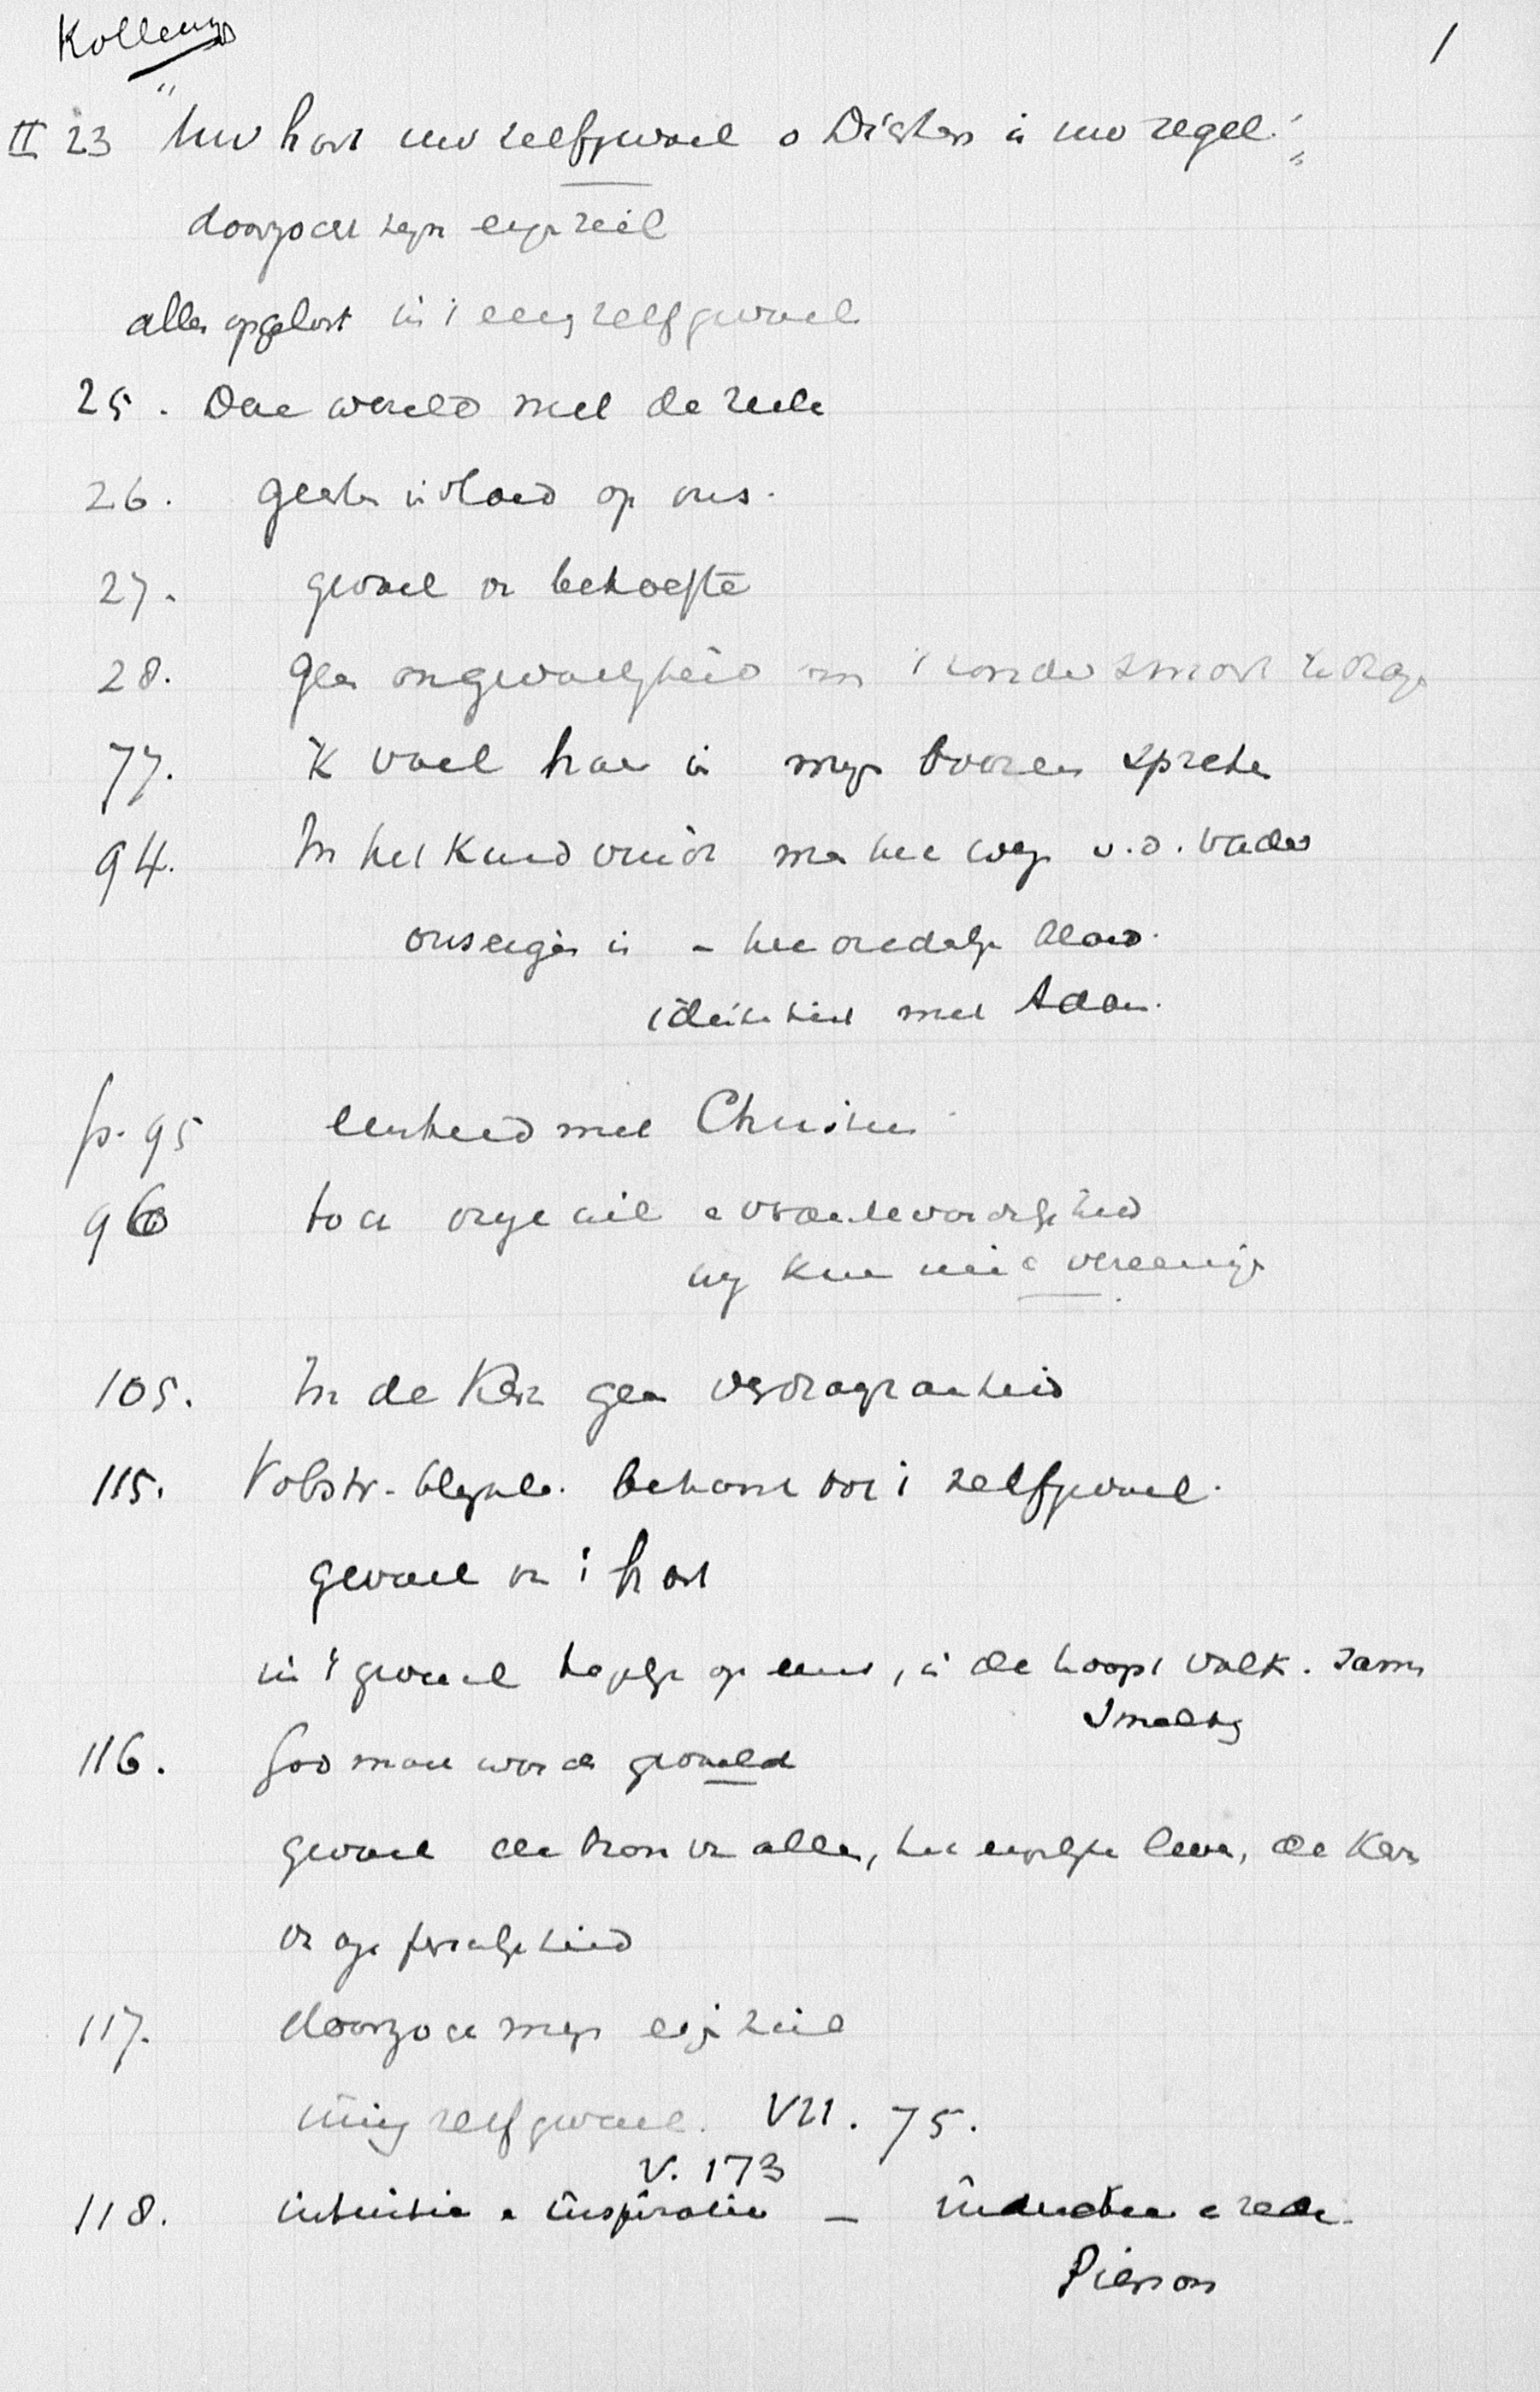 Kollewijn 1
II 23 "Uw hart uw zelfgevoel o Dichters is uw regel."
doorzoekt zijn eigen ziel
alles opgelost in 't eenig zelfgevoel
25. Der wereld met de ziel
26. geesten invloed op ons.
27. gevoel en behoefte
28. Geen ongevoeligheid om 't zonder smart te dragen
77. 'k voel haar in mijn boezem spreken
94. In het kind vindt men het weg v.d. vader
ons eigen is - het onedele bloed.
identiteit met Adam.
p. 95 eenheid met Christus
96 toch vrije wil en verantwoordelijkheid
wij kunnen niet vereenigen
105. In de kerk geen verdraagzaamheid
115. Volstr. belijnde. bekomt door 't zelfgevoel.
gevoel van 't hart
in 't gevoel op eens, in de hoogst volk. samen
smelting
116. God moet worden gevoeld
gevoel de bron van alles, het eigenlijke leven, de kern
onze persoonlijkheid
117. doorzoek mijn eigen ziel
innig zelfgevoel. VII. 75.
V. 173
118. intuitie en inspiratie — inductie en rede.
Pierson